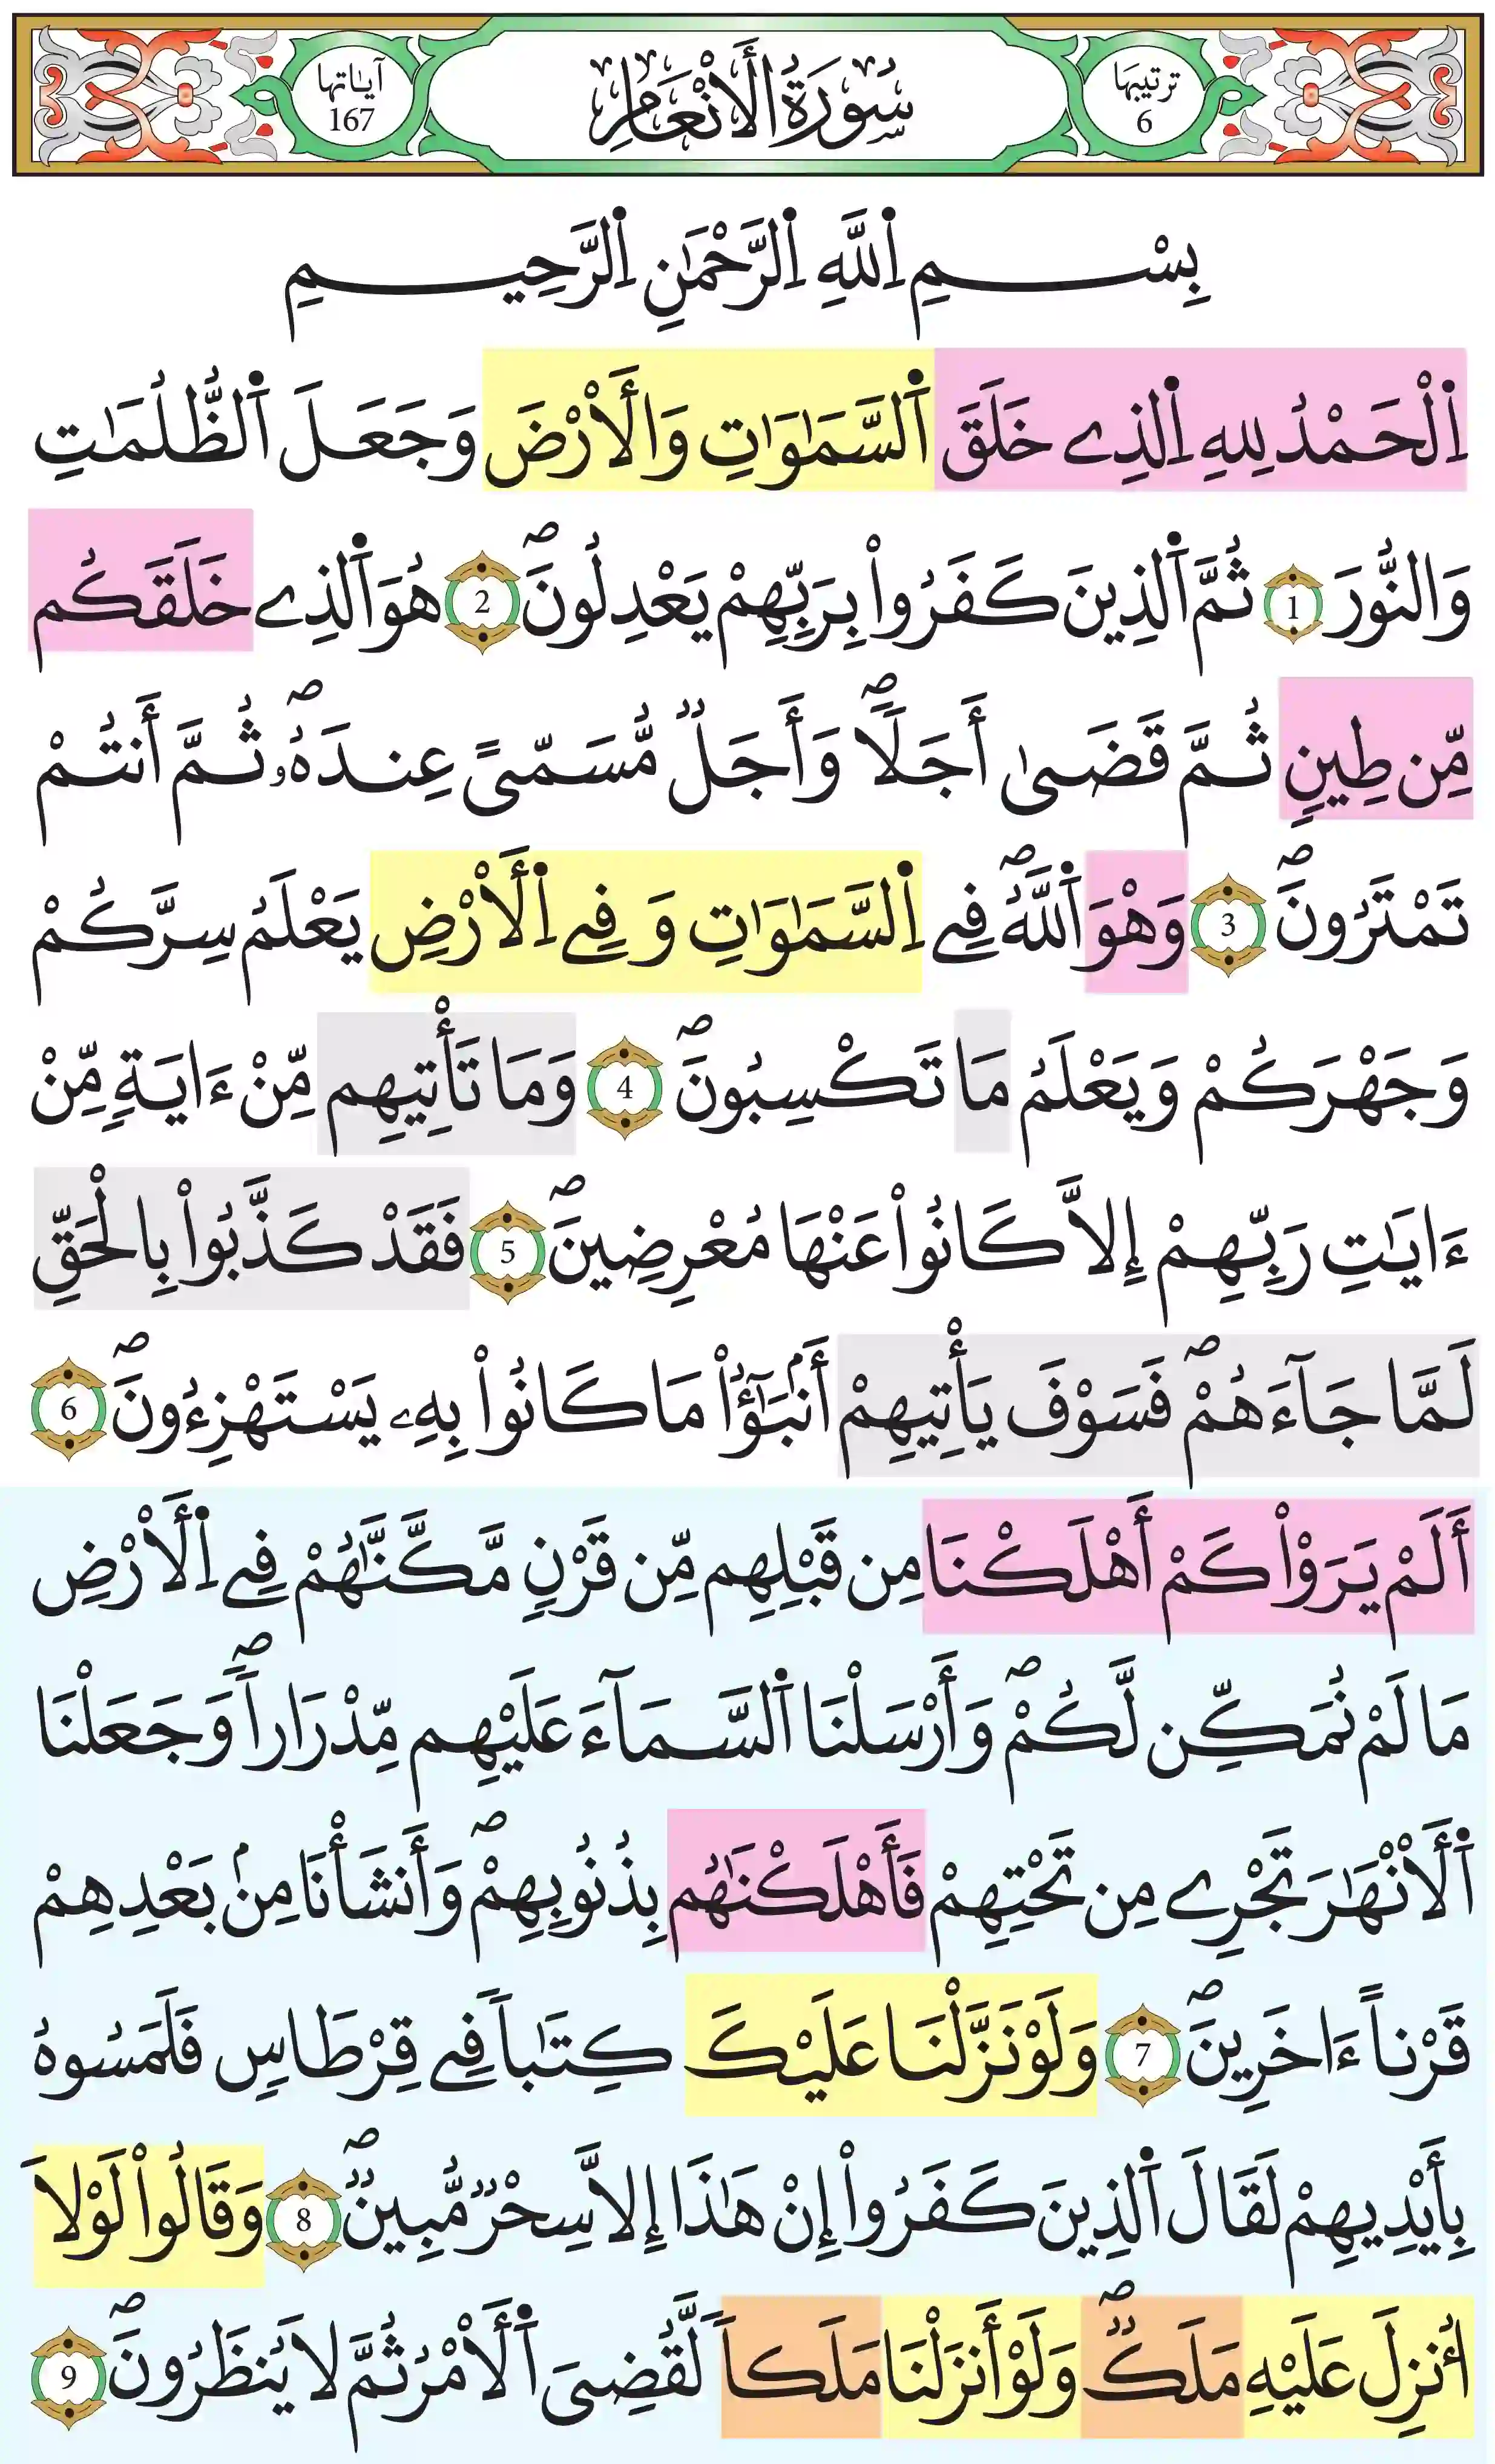 ترتيبها 6 سُورَةُ الْأَنْعَامِ آياتها 167
بِسْمِ اِ۬للَّهِ اِ۬لرَّحْمَٰنِ اِ۬لرَّحِيمِ
اِ۬لْحَمْدُ لِلهِ اِ۬لذِے خَلَقَ اَ۬لسَّمَٰوَٰتِ وَالْأَرْضَ وَجَعَلَ اَ۬لظُّلُمَٰتِ
وَالنُّورَ 1 ثُمَّ اَ۬لذِينَ كَفَرُواْ بِرَبِّهِمْ يَعْدِلُونَۖ 2 هُوَ اَ۬لذِے خَلَقَكُم
مِّن طِينٍ ثُمَّ قَضَىٰ أَجَلاٗۖ وَأَجَلٞ مُّسَمّىً عِندَهُۥۖ ثُمَّ أَنتُمْ
تَمْتَرُونَۖ 3 وَهْوَ اَ۬للَّهُۖ فِے اِ۬لسَّمَٰوَٰتِ وَفِے اِ۬لْأَرْضِ يَعْلَمُ سِرَّكُمْ
وَجَهْرَكُمْ وَيَعْلَمُ مَا تَكْسِبُونَۖ 4 وَمَا تَأْتِيهِم مِّنْ ءَايَةٖ مِّنْ
ءَايَٰتِ رَبِّهِمْ إِلاَّ كَانُواْ عَنْهَا مُعْرِضِينَۖ 5 فَقَدْ كَذَّبُواْ بِالْحَقِّ
لَمَّا جَآءَهُمْۖ فَسَوْفَ يَأْتِيهِمْ أَنۢبَٰٓؤُاْ مَا كَانُواْ بِهِۦ يَسْتَهْزِءُونَۖ 6
أَلَمْ يَرَوْاْ كَمْ أَهْلَكْنَا مِن قَبْلِهِم مِّن قَرْنٖ مَّكَّنَّٰهُمْ فِے اِ۬لْأَرْضِ
مَا لَمْ نُمَكِّن لَّكُمْۖ وَأَرْسَلْنَا اَ۬لسَّمَآءَ عَلَيْهِم مِّدْرَاراٗۖ وَجَعَلْنَا
اَ۬لْأَنْهَٰرَ تَجْرِے مِن تَحْتِهِمْ فَأَهْلَكْنَٰهُم بِذُنُوبِهِمْۖ وَأَنشَأْنَا مِنۢ بَعْدِهِمْ
قَرْناً ءَاخَرِينَۖ 7 وَلَوْ نَزَّلْنَا عَلَيْكَ كِتَٰباٗ فِے قِرْطَاسٖ فَلَمَسُوهُ
بِأَيْدِيهِمْ لَقَالَ اَ۬لذِينَ كَفَرُواْ إِنْ هَٰذَا إِلاَّ سِحْرٞ مُّبِينٞۖ 8 وَقَالُواْ لَوْلَا
أُنزِلَ عَلَيْهِ مَلَكٞۖ وَلَوْ أَنزَلْنَا مَلَكاٗ لَّقُضِىَ اَ۬لْأَمْرُ ثُمَّ لَا يُنظَرُونَۖ 9